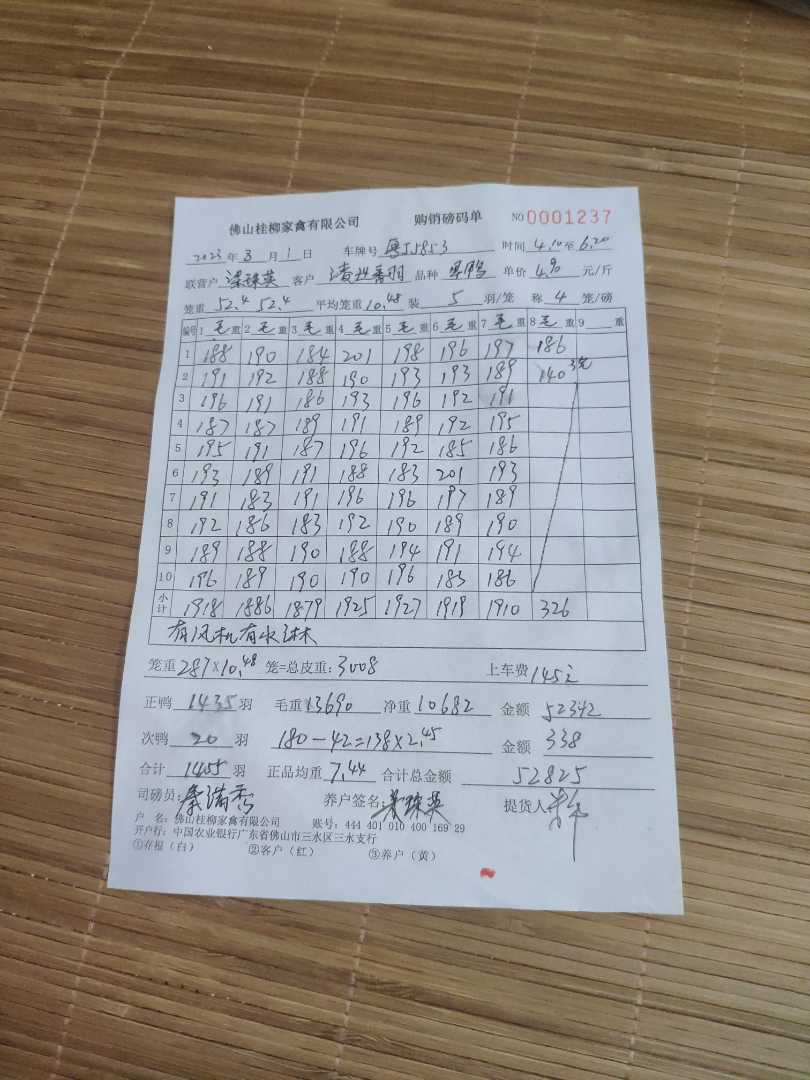 佛山桂柳家禽有限公司 购销磅码单 NO 0001237
2023年3月1日 车牌号 粤J5853 时间 4.10至6.20
联营户 梁珠英 客户 品种 单价 4.90 元/斤
笼重 52.4 52.4 平均笼重 10.48 装 5 羽/笼 称 4 笼/磅
编号 1 毛 重 2 毛 重 3 毛 重 4 毛 重 5 毛 重 6 毛 重 7 毛 重 8 毛 重 9 重
1 188 190 184 201 198 196 197 186
2 191 192 188 190 193 193 189 140
3 196 191 186 193 196 192 191
4 187 187 189 191 189 192 195
5 195 191 187 196 192 185 186
6 193 189 191 188 183 201 193
7 191 183 191 196 196 197 189
8 192 186 183 192 190 189 190
9 189 188 190 188 194 191 194
10 196 189 190 190 196 183 186
小计 1918 1886 1879 1925 1927 1919 1910 326
有风机有水
笼重 287×10.48 笼=总皮重: 3008 上车费 145
正鸭 1435 羽 毛重 13690 净重 10682 金额 52342
次鸭 20 羽 180-42=138×2.45 金额 338
合计 1455 羽 正品均重 7.44 合计总金额 52825
司磅员: 养户签名 梁珠英 提货人
户 名: 佛山桂柳家禽有限公司 账号: 444 401 010 400 169 29
开户行: 中国农业银行广东省佛山市三水区三水支行
①存根(白) ②客户(红) ③养户(黄)